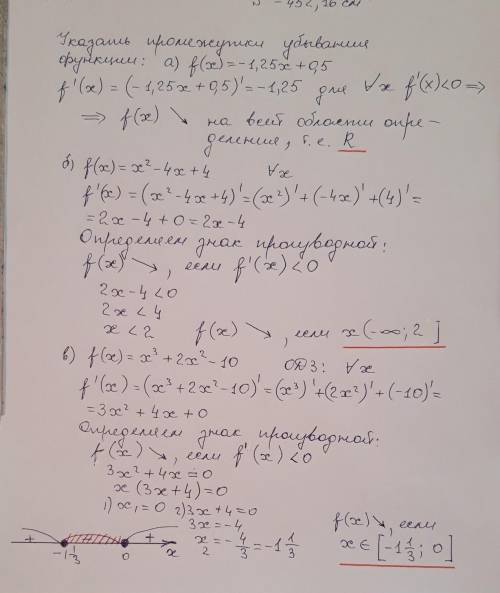 Указать промежутки убывания
функции: а) f(x)=-1,25x+0,5
f'(x) = (-1,25x+0,5)'=-1,25 для ∀x f'(x)<0 ⇒
⇒ f(x) ↘ на всей области опре-
деления, т.е. R
б) f(x)=x²-4x+4 ∀x
f'(x)=(x²-4x+4)'=(x²)'+(-4x)'+(4)'=
=2x-4+0=2x-4
Определяем знак производной:
f(x) ↘, если f'(x)<0
2x-4<0
2x<4
x<2 f(x) ↘, если x(-∞; 2]
в) f(x)=x³+2x²-10 ОДЗ: ∀x
f'(x)=(x³+2x²-10)'=(x³)'+(2x²)'+(-10)'=
=3x²+4x+0
Определяем знак производной:
f(x) ↘, если f'(x)<0
3x²+4x=0
x(3x+4)=0
1) x₁=0 2) 3x+4=0
3x=-4
x₂=-4/3=-1 1/3
+ - +
-1 1/3 0 x
f(x) ↘, если
x∈[-1 1/3; 0]